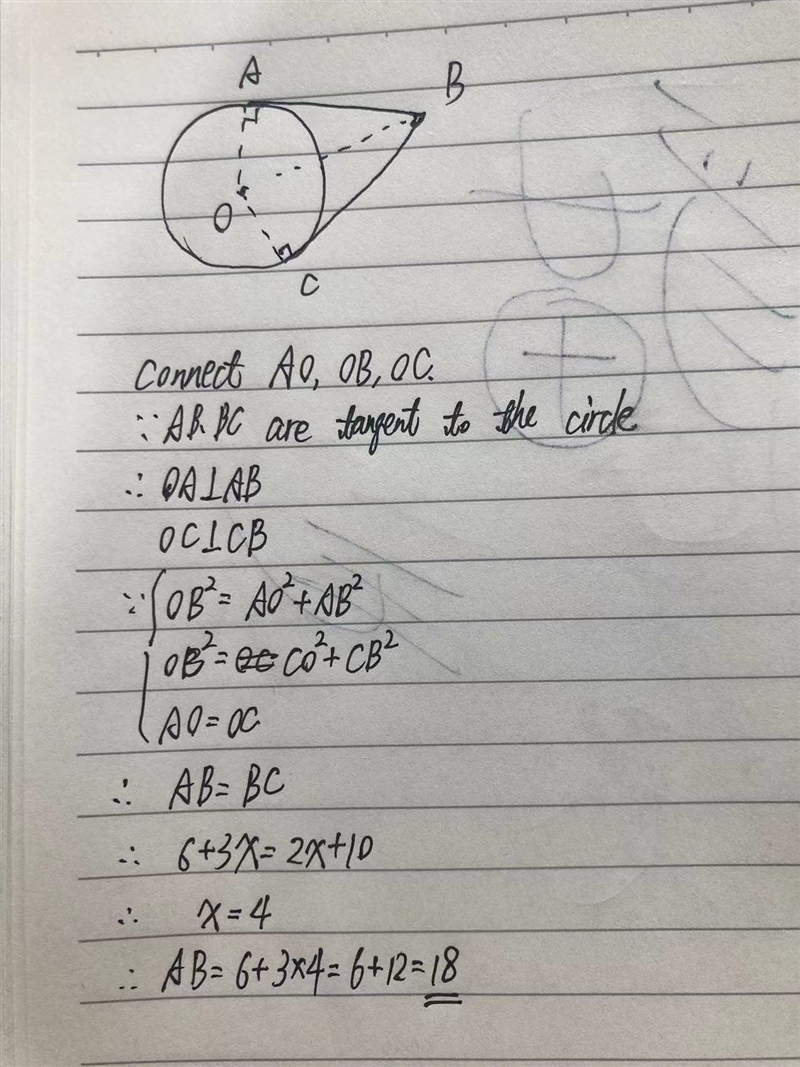 A
B
O
C
Connect AO, OB, OC.
∵ AB. BC are tangent to the circle
∴ OA⊥AB
OC⊥CB
∵ { OB² = AO² + AB²
OB² = CO² + CB²
AO = OC
∴ AB = BC
∴ 6+3x = 2x+10
∴ x = 4
∴ AB = 6+3×4 = 6+12 = 18